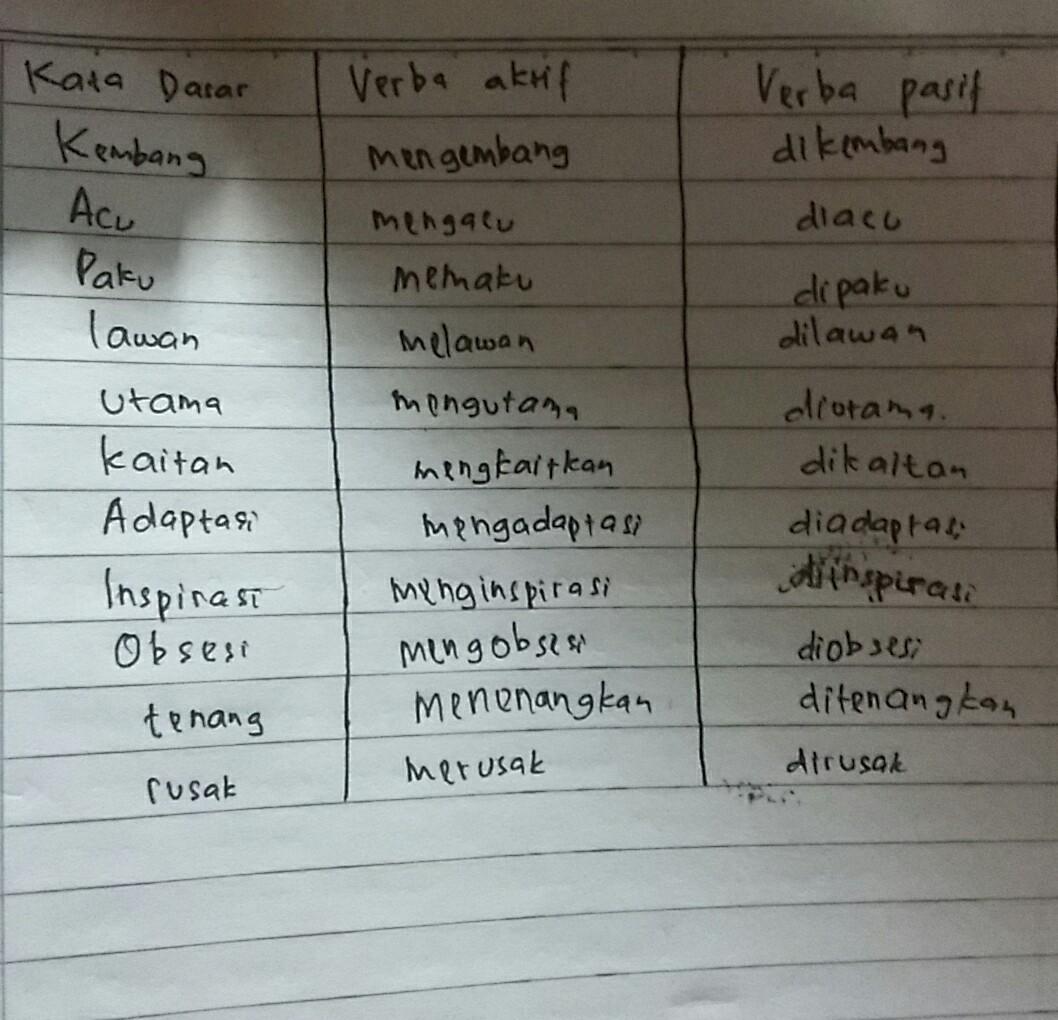 Kata Dasar Verba aktif Verba pasif
Kembang mengembang dikembang
Acu mengacu diacu
Paku memaku dipaku
lawan melawan dilawan
utama mengutama diutama.
Kaitan mengkaitkan dikaitan
Adaptasi mengadaptasi diadaptasi
Inspirasi menginspirasi diinspirasi
Obsesi mengobsesi diobsesi
tenang menenangkan ditenangkan
rusak merusak dirusak